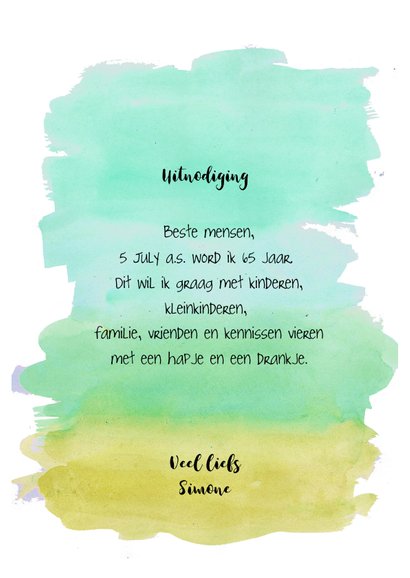 Uitnodiging
Beste mensen,
5 July a.s. word ik 65 jaar.
Dit wil ik graag met kinderen,
kleinkinderen,
familie, vrienden en kennissen vieren
met een hapje en een drankje.
Veel liefs
Simone